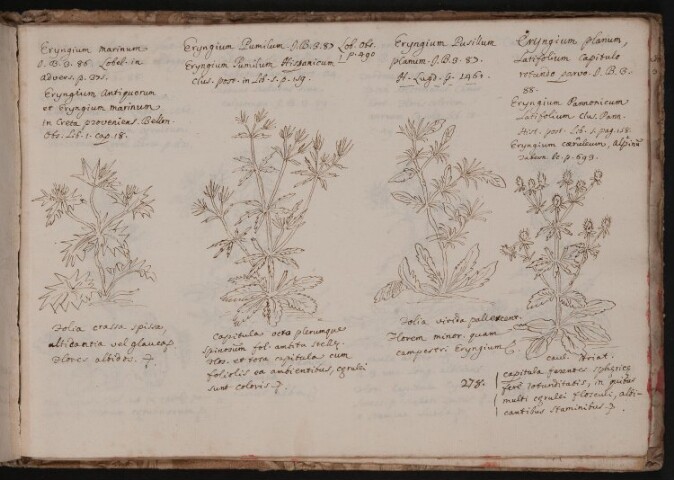 Eryngium marinum
J. B. 3. 86. Lobel. in
advers. p.
Eryngium Antiquorum
et Eryngium marinum
in Creta proveniens. Bellon.
Obs. Lib. 1. cap. 18.
Folia crassa spissa
albicantia vel glauca
flores albidos.
Eryngium Pumilum J. B. 3. 87 Lob. Obs. p. 490
Eryngium Pumilum Hispanicum
Clus. post. in Lib. 5. p. 159.
Capitula octo plerunque
spinorum fol. ambitu
flos. et tota capitula cum
foliolis ea ambientibus, cęrulei
sunt coloris
Eryngium Pusillum
planum J. B. 3. 87.
H. Lugd. p. 1461.
Folia viridia pallescent.
Florem minor. quam
campestri Eryngium
278.
Eryngium planum,
Latifolium capitulo
rotundo parvo. J. B. 3.
88.
Eryngium Pannonicum
Latifolium Clus. Pann.
Hist. post. Lib. 5. pag. 158.
Eryngium cœruleum,
p. 693.
cauli. striat.
capitula ferentes sphericę
ferè rotunditatis, in quibus
multi cęrulei flosculi, albi-
cantibus staminibus